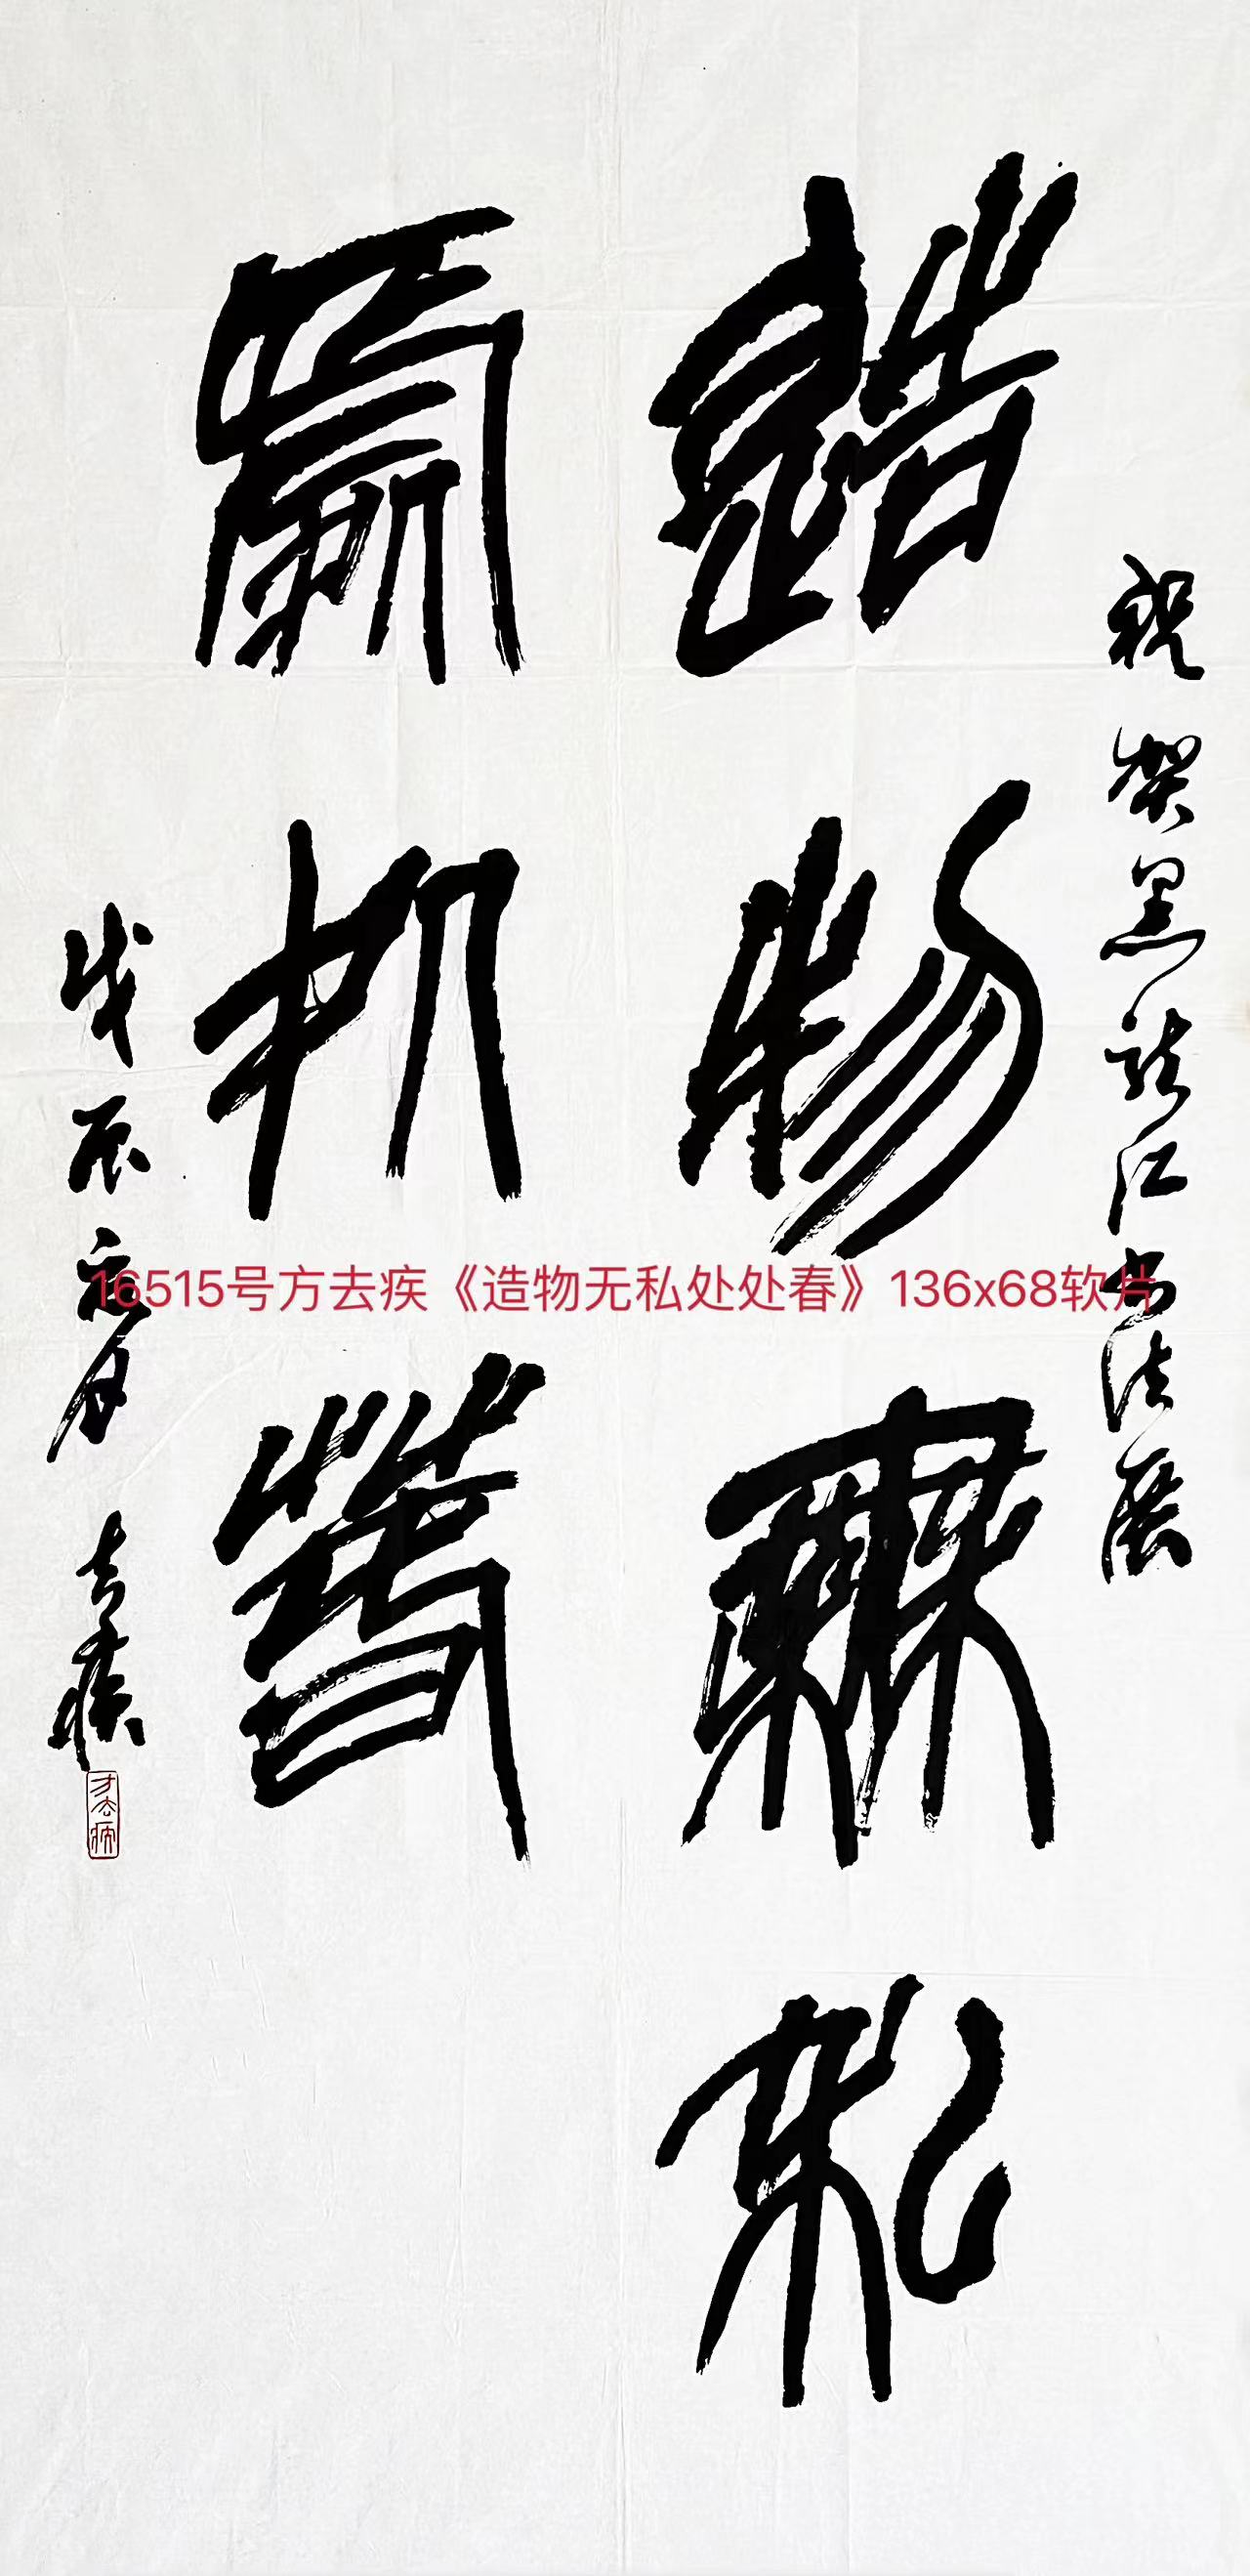 祝贺黑龙江书法展
造物無私
處処春
戊辰元月 去疾
方去疾
16515号方去疾《造物无私处处春》136x68软片